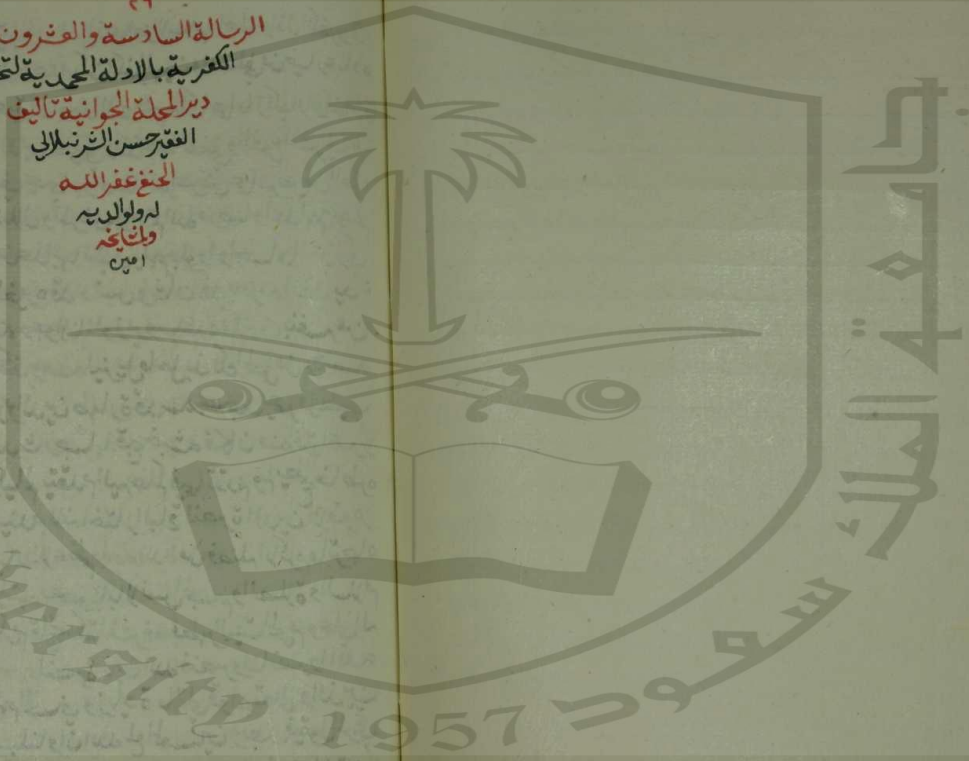 ٢٦
الرسالة السادسة والعشرون
الكفرية بالادلة المحمدية
دير المحلة الجوانية تاليف
الفقير حسن الشرنبلالي
الحنفي غفر الله
له ولوالديه
ولمشايخه
امين
جامعة الملك سعود
versity 1957